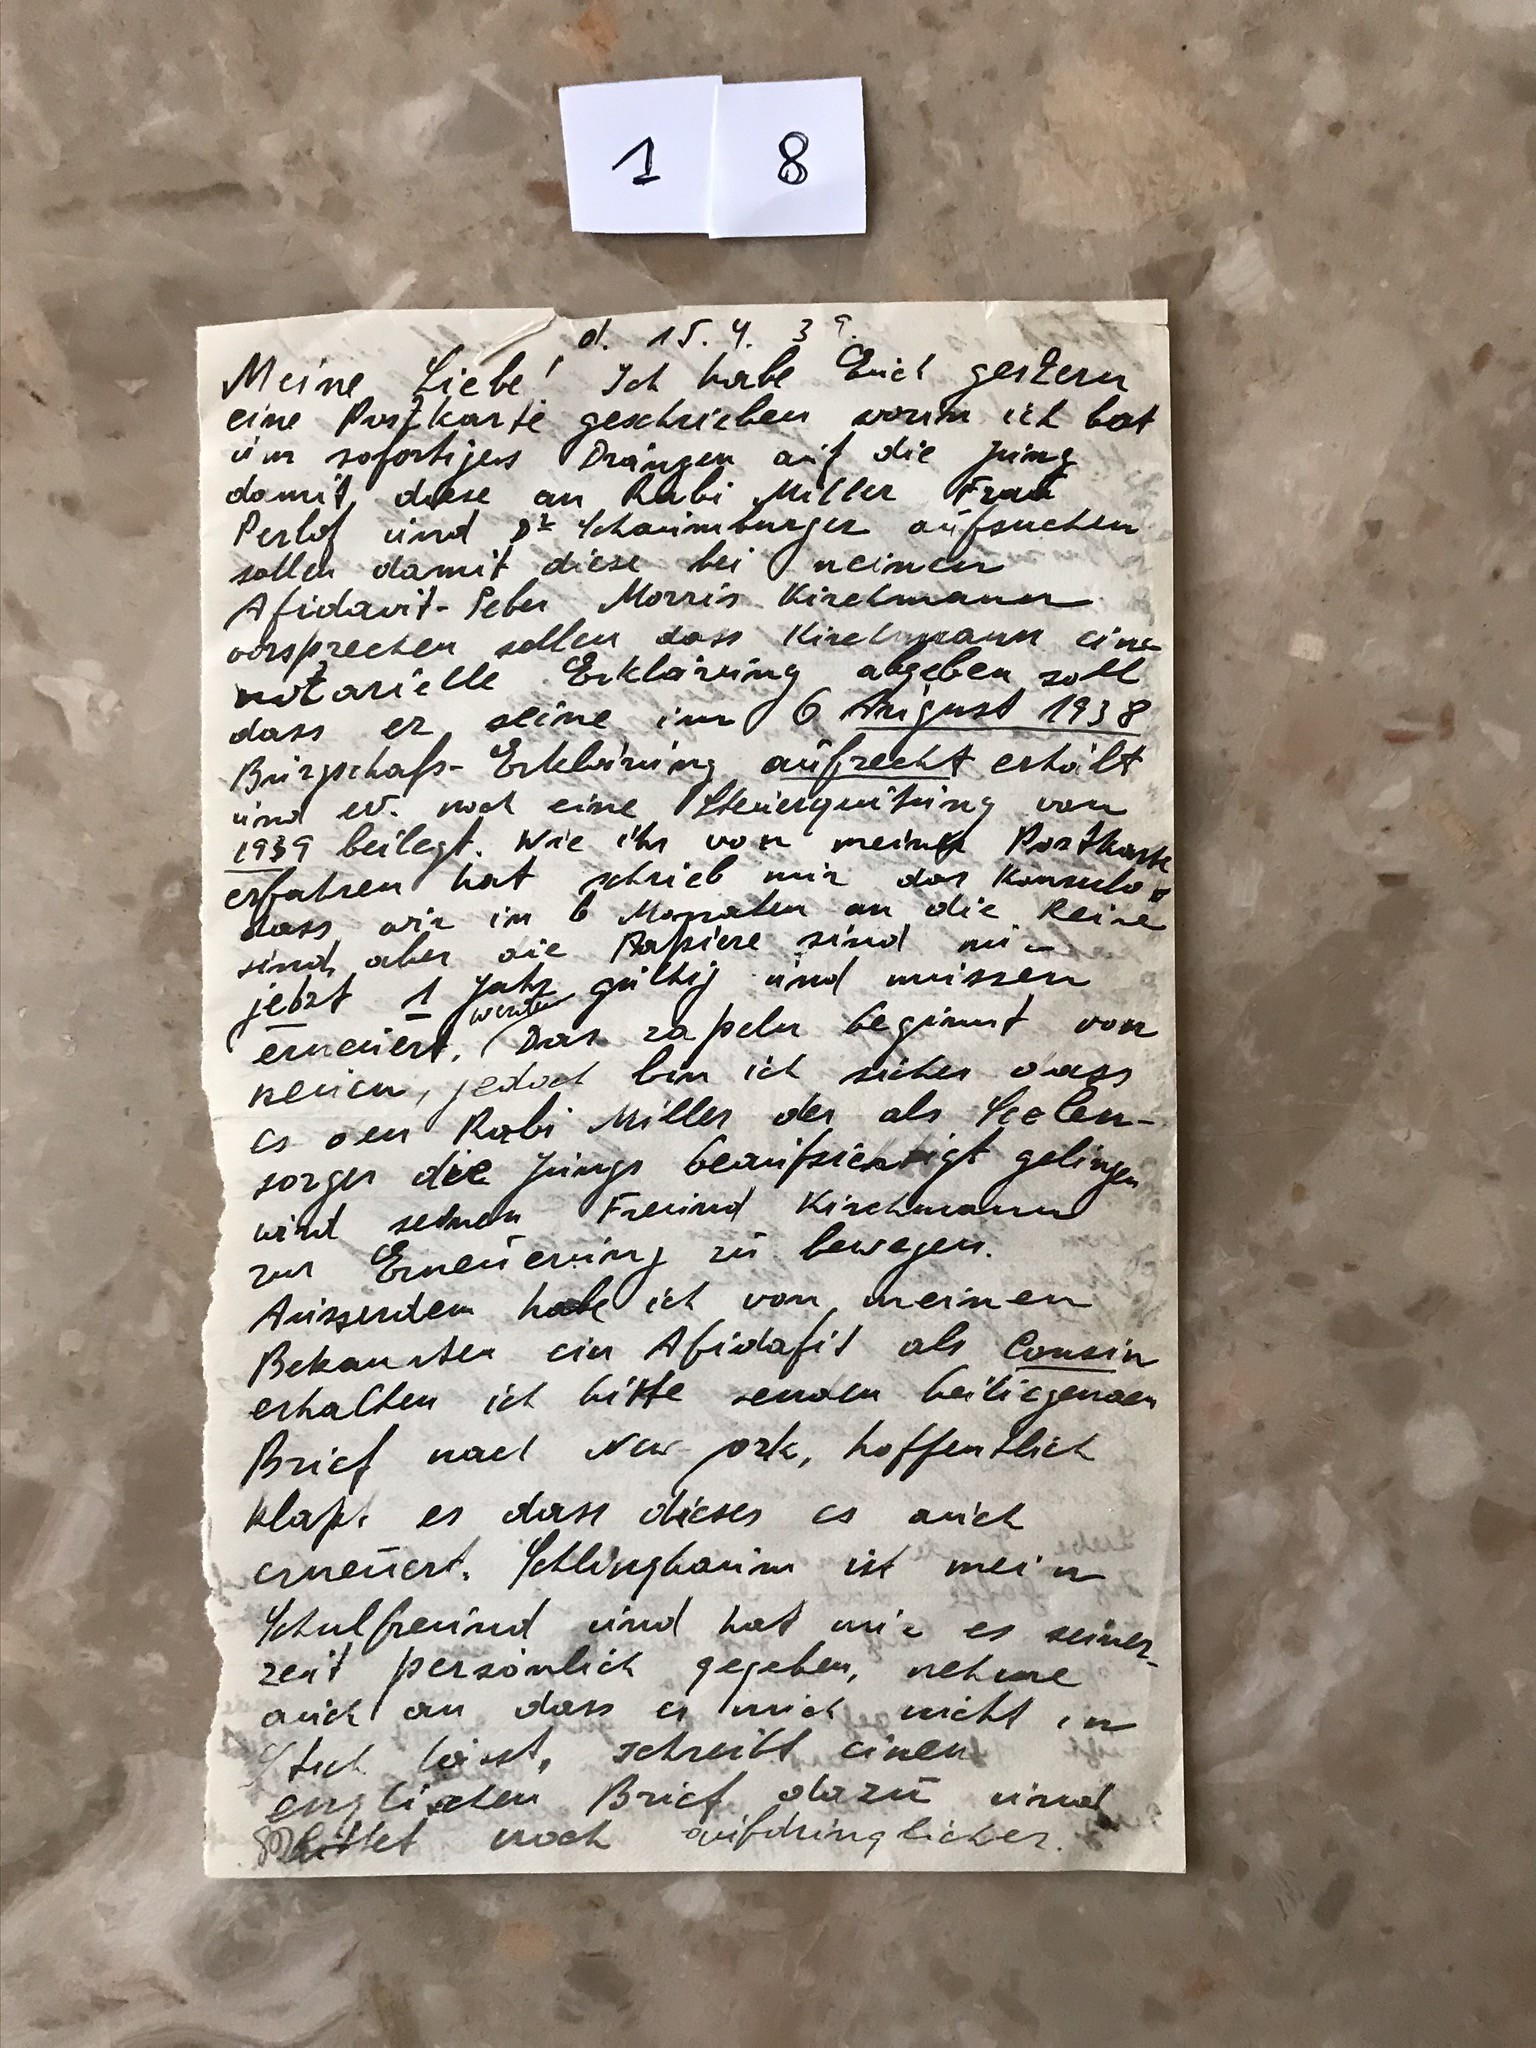 1 8
d. 15. 4. 39.
Meine Liebe! Ich habe Euch gestern
eine Postkarte geschrieben worin ich bat
um sofortiges Drängen auf die Jung
damit diese an Rabi Miller Frau
Perlof und Dr Schaumburger aufsuchen
sollen damit diese bei meinen
Afidavit-Geber Morris Kirchmann
vorsprechen sollen dass Kirchmann eine
notarielle Erklärung abgeben soll
dass er seine im 6 August 1938
Bürgschafs-Erklärung aufrecht erhält
und ev. noch eine Steuerquitung von
1939 beilegt. Wie ihr von meiner Postkarte
erfahren hat schrieb mir das Konsulat
dass wir in 6 Monaten an die Reihe
sind, aber die Papiere sind nur
jetzt 1 Jahr gültig und müssen
erneuert werden. Das zapeln beginnt von
neuen, jedoch bin ich sicher dass
es den Rabi Miller der als Seelen-
sorger die Jungs beaufsichtigt gelingen
wird seinen Freund Kirchmann
zur Erneuerung zu bewegen.
Ausserdem habe ich von meinen
Bekannten ein Afidafit als Cousin
erhalten ich bitte senden beiliegenden
Brief nach New york, hoffentlich
klapt es dass dieses es auch
erneuert. Schlingbaum ist mein
Schulfreund und hat mir es seiner-
zeit persönlich gegeben, nehme
auch an dass er mich nicht in
Stich lässt, schreibt einen
englischen Brief dazu und
bittet noch aufdringlicher.